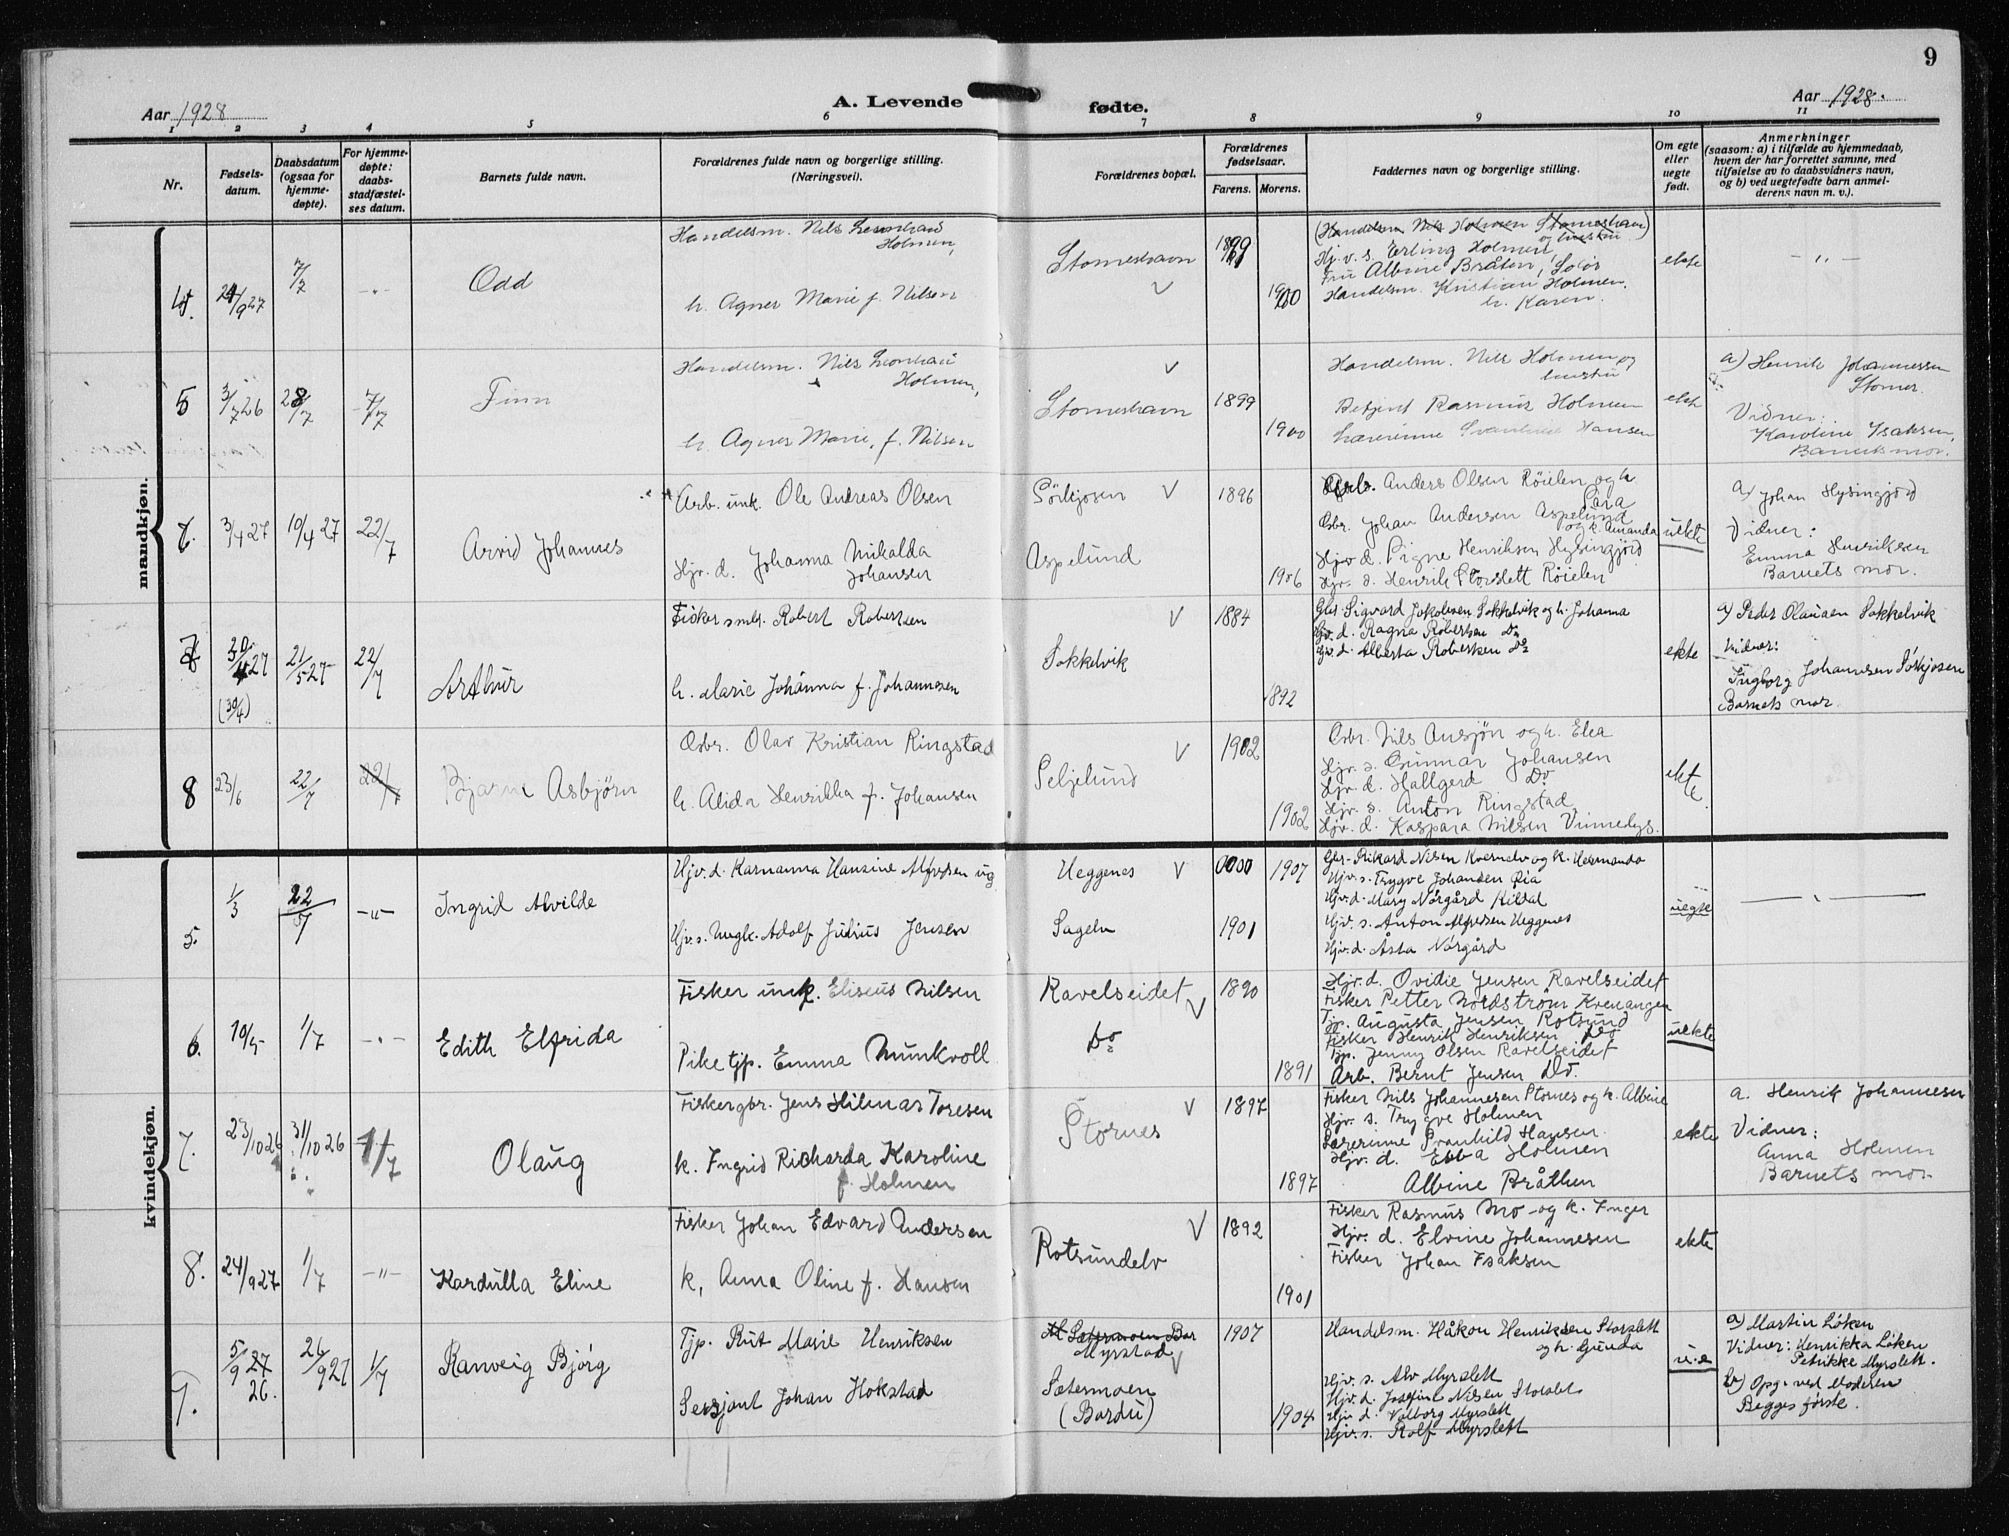 9
Aar 1928
A. Levende
fødte.
Aar 1928.
1 2 3 4 5 6 7 8 9 10 11
Nr.
Fødsels-
datum.
Daabsdatum
(ogsaa for
hjemme-
døpte).
For hjemme-
døpte:
daabs-
stadfæstel-
ses datum.
Barnets fulde navn.
Forældrenes fulde navn og borgerlige stilling.
(Næringsvei).
Forældrenes bopæl.
Forældrenes
fødselsaar.
Farens. Morens.
Faddernes navn og borgerlige stilling.
Om egte
eller
uegte
født.
Anmerkninger
(saasom: a) i tilfælde av hjemmedaab,
hvem der har forrettet samme, med
tilføielse av to daabsvidners navn,
og b) ved uegtefødte barn anmel-
derens navn m. v.).
mandkjøn.
4.
24/9 27
7/7
-"-
Odd
Handelsm. Nils Leonhard
Holmen,
h. Agnes Marie f. Nilsen
Storneshavn
V
1899
1900
(Handelsm Nils Holmen Storneshavn)
og hustru
Hj.v.s. Erling Holmen
Fru Albine Bråten, Solør
Handelsm. Kristian Holmen.
h. Karen.
ekte
- " -
5
3/7 26
28/7
7/7
Finn
Handelsm. Nils Leonhard
Holmen,
h. Agnes Marie, f. Nilsen
V
Storneshavn
1899
1900
Handelsm. Nils Holmen og
hustru
Betjent Rasmus Holmen
Lærerinne Svanhild Hansen
ekte
a) Henrik Johannessen
Stornes
Vidner:
Karoline Isaksen,
Barnets mor.
6.
3/4 27
10/4 27
22/7
Arvid Johannes
Arb. unk. Ole Andreas Olsen
Hjv. d. Johanna Mikalda
Johansen
Sörkjosen V
Aspelund
1896
1906
Arb. Anders Olsen Røielen og h
Sara
Gbr. Johan Andersen Aspelund
og h. Amanda
Hjv d. Signe Henriksen Hysingjord
Hjv. s. Henrik Storslett Røielen
uekte
a) Johan Hysingjord
Vidner:
Emma Henriksen
Barnets mor.
7
30/4 27
(30/4)
21/5 27
22/7
Arthur
Fisker smbr. Robert Robertsen
h. Marie Johanna f. Johannesen
V
Sokkelvik
1884
1892
Gbr. Sigvard Jakobsen Sokkelvik og h. Johanna
Hjv. d. Ragna Robertsen Do
Hjv. d. Alberta Robertsen Do
ekte
a) Peder Olausen Sokkelvik
Vidner:
Ingborg Johannesen Sörkjosen
Barnets mor.
8
23/6
22/7
22/7
Bjarne Asbjörn
Gbr. Olav Kristian Ringstad
h. Alida Henrikka f. Johansen
V
Seljelund
1902
1902
Gbr. Nils Ansjön og h. Elea
Hjv. s. Gunnar Johansen
Hjv. d. Hallgerd Do
Hjv. s. Anton Ringstad
Hjv. d. Kaspara Nilsen Vinnelys.
ekte
kvindekjøn.
5.
1/3
22/7
-"-
Ingrid Alvilde
Hjv. d. Karnanna Hansine Alfredsen ug
Hjv. s. Ungk. Adolf Julius Jensen
Heggenes V
Sagelv
1907
1901
Gbr. Rikard Nilsen Kvernelv og k. Hermanda
Hjv. s. Trygve Johansen Lia
Hjv. d. Mary Nörgård Hildal
Hjv. s. Anton Alfredsen Heggenes
Hjv. d. Åsta Nörgård
uegte
6.
10/5
1/7
- " -
Edith Elfrida
Fisker unk. Eliseus Nilsen
Pike tjp. Emma Munkvoll
Ravelseidet
V
Do
1890
1891
Hjv. d. Ovidie Jensen Ravelseidet
Fisker Petter Nordström Kvenangen
Tjp. Augusta Jensen Rotsund
Fisker Henrik Henriksen Do
Tjp. Jenny Olsen Ravelseidet
Arb. Bernt Jensen Do.
uekte
7.
23/10 26
31/10 26
1/7
Olaug
Fiskergbr. Jens Hilmar Toresen
k. Ingrid Richarda Karoline
f. Holmen
V
Stornes
1897
1897
Fisker Nils Johannesen Stornes og k. Albine
Hjv. s. Trygve Holmen
Lærerinne Svanhild Hansen
Hjv. d. Ebba Holmen
Albine Bråthen
ekte
a. Henrik Johannesen
Vidner:
Anna Holmen
Barnets mor.
8.
24/9 27
1/7
-"-
Kardulla Eline
Fisker Johan Edvard Andersen
k, Anna Oline f. Hansen
V
Rotsundelv
1892
1901
Fisker Rasmus Mo og k. Inger
Hjv. d. Elvine Johannesen
Fisker Johan Isaksen
ekte
9.
5/9 27
26.
26/9 27
1/7
Ranveig Bjórg
Tjp. Rut Marie Henriksen
Sersjant Johan Hokstad
Sætermoen Bar
Myrstad
V
Sætermoen
(Bardu)
1907
1904
Handelsm. Håkon Henriksen Storslett
og h. Gunda
Hjv. s. Alv Myrslett
Hjv. d. Josefine Nilsen Storslett
Hjv d. Valborg Myrslett
Hjv. s. Rolf Myrslett
u.e
a) Martin Löken
Vidner: Henrikka Löken
Petrikke Myrslett.
b) Opg. ved Moderen
Begges første.